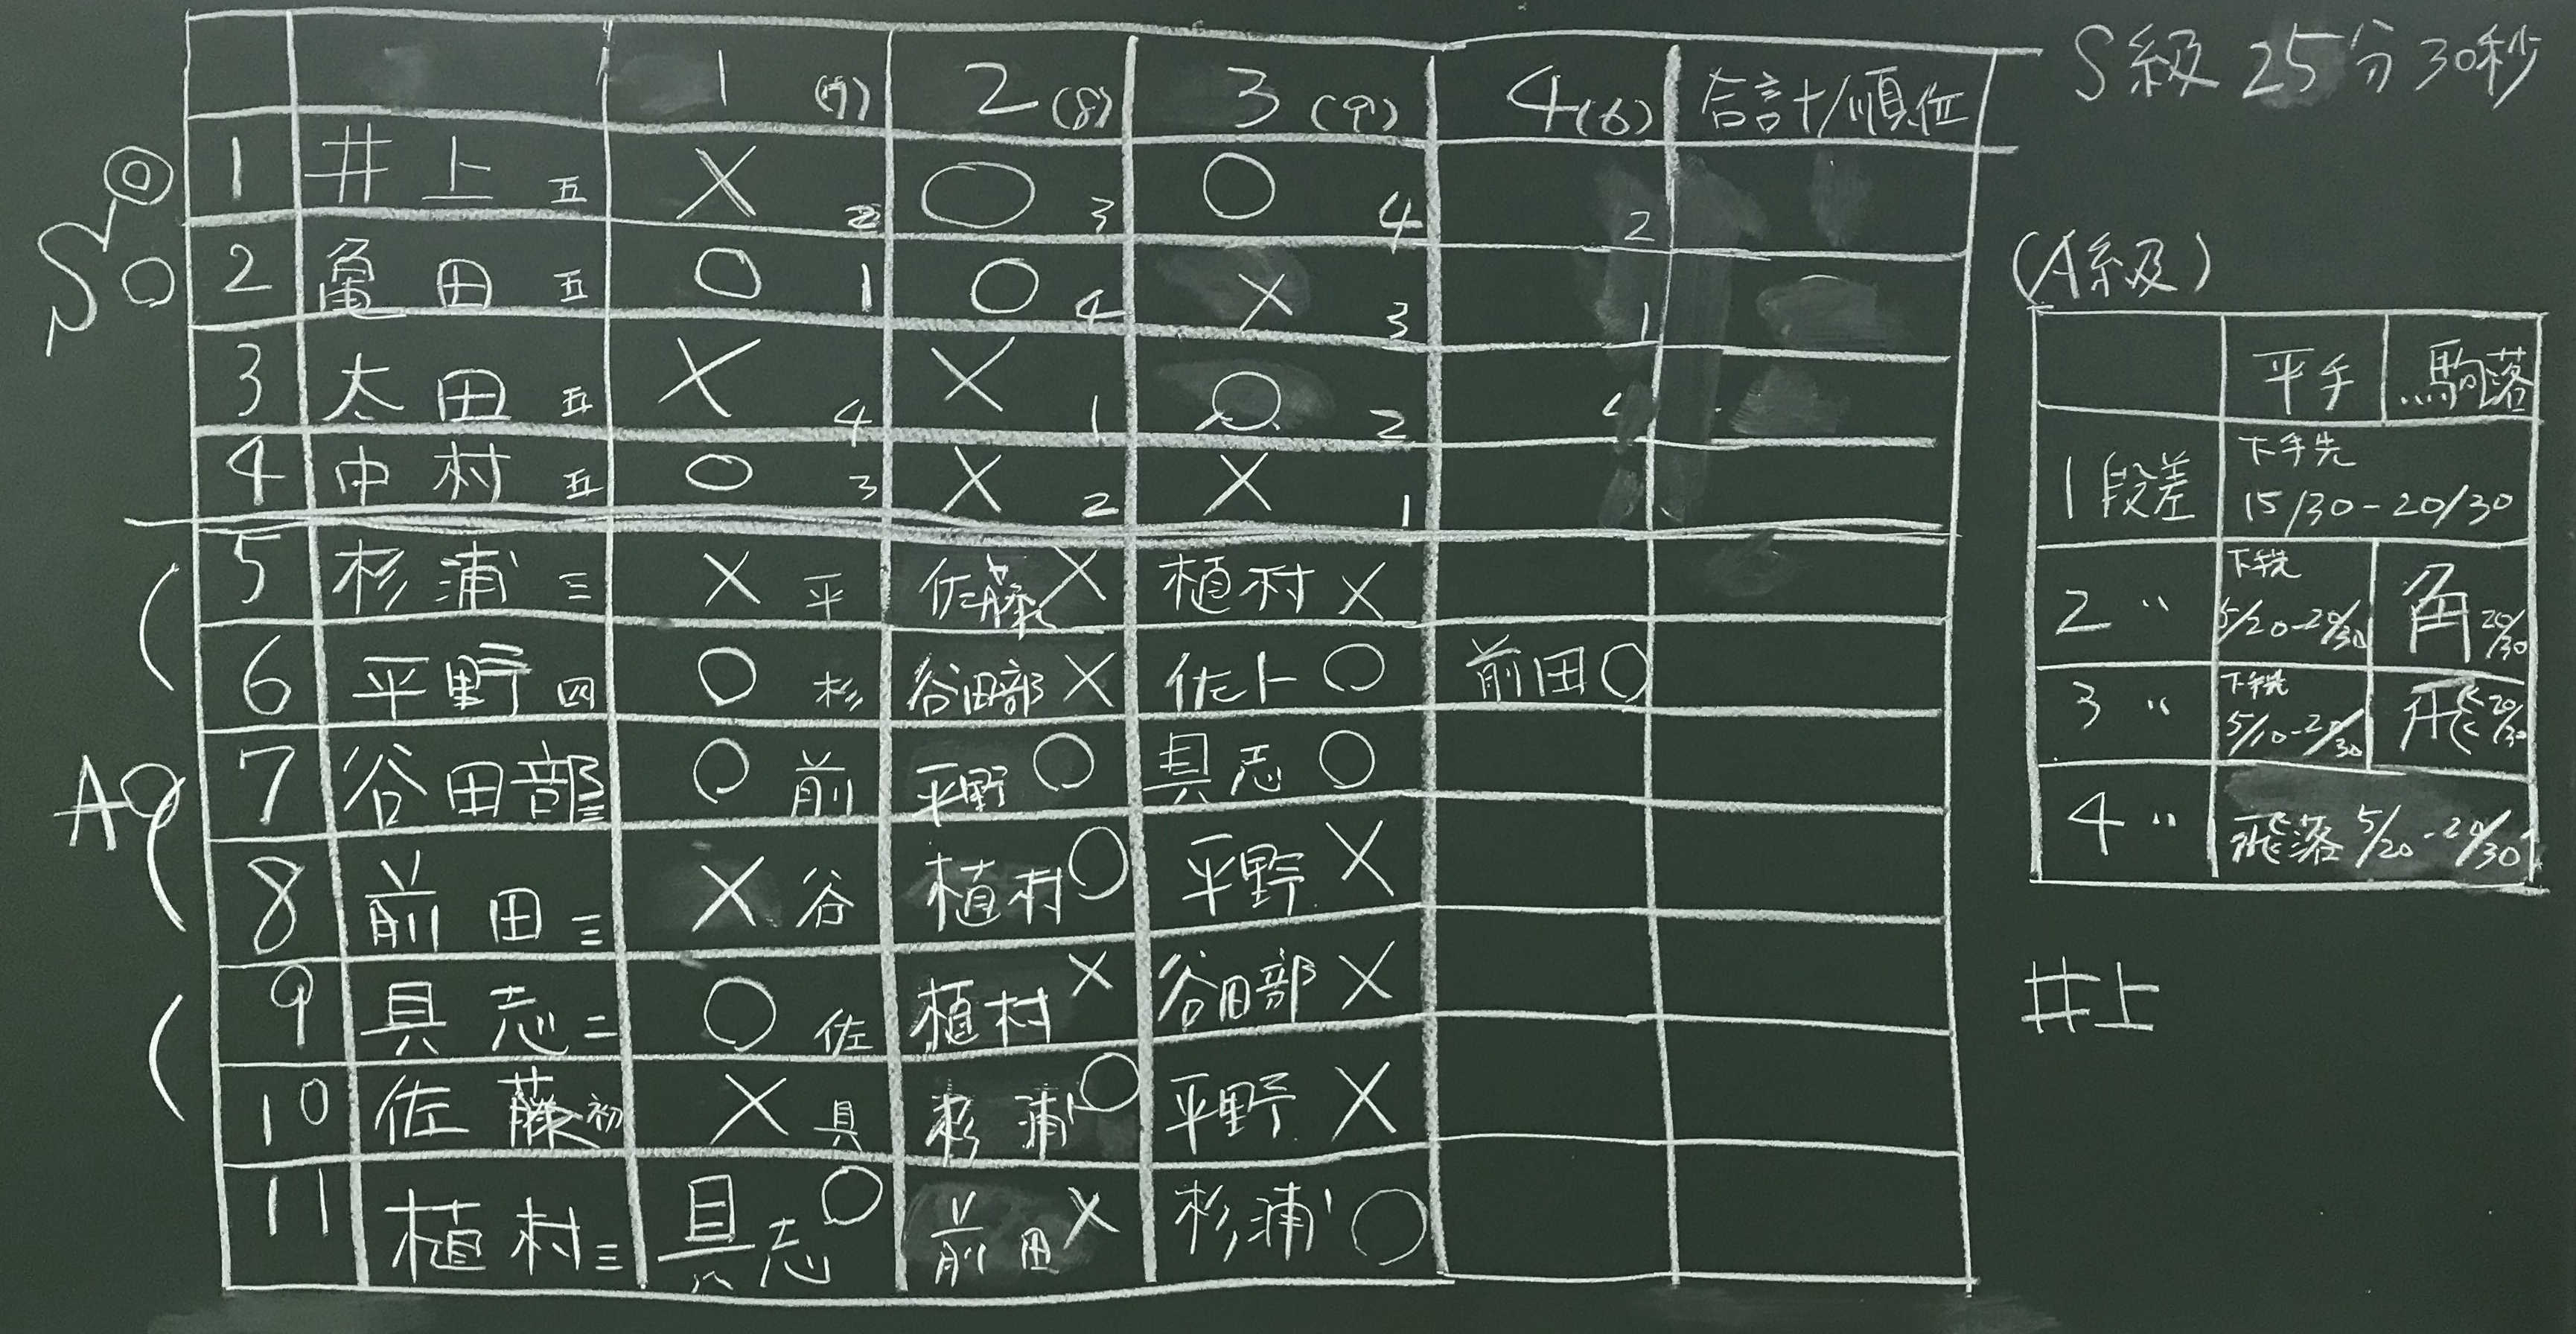 1 (7) 2 (8) 3 (9) 4 (6) 合計/順位
1 井上 五 × 2 ○ 3 ○ 4 2
2 亀田 五 ○ 1 ○ 4 × 3 1
3 太田 五 × 4 × 1 ○ 2
4 中村 五 ○ 3 × 2 × 1
5 杉浦 三 × 平 佐藤 × 植村 ×
6 平野 四 ○ 杉 谷田部 × 佐ト ○ 前田 ○
7 谷田部 三 ○ 前 平野 ○ 具志 ○
8 前田 三 × 谷 植村 ○ 平野 ×
9 具志 二 ○ 佐 植村 × 谷田部 ×
10 佐藤 初 × 具 杉浦 ○ 平野 ×
11 植村 三 具志 ○ 前田 × 杉浦 ○
S
A
S級 25分30秒
(A級)
平手 駒落
1段差 下手先
15/30-20/30
2 〃 下手先 角 20/30
5/20-20/30
3 〃 下手先 飛 20/30
5/10-20/30
4 〃 飛落 5/20-20/30
井上